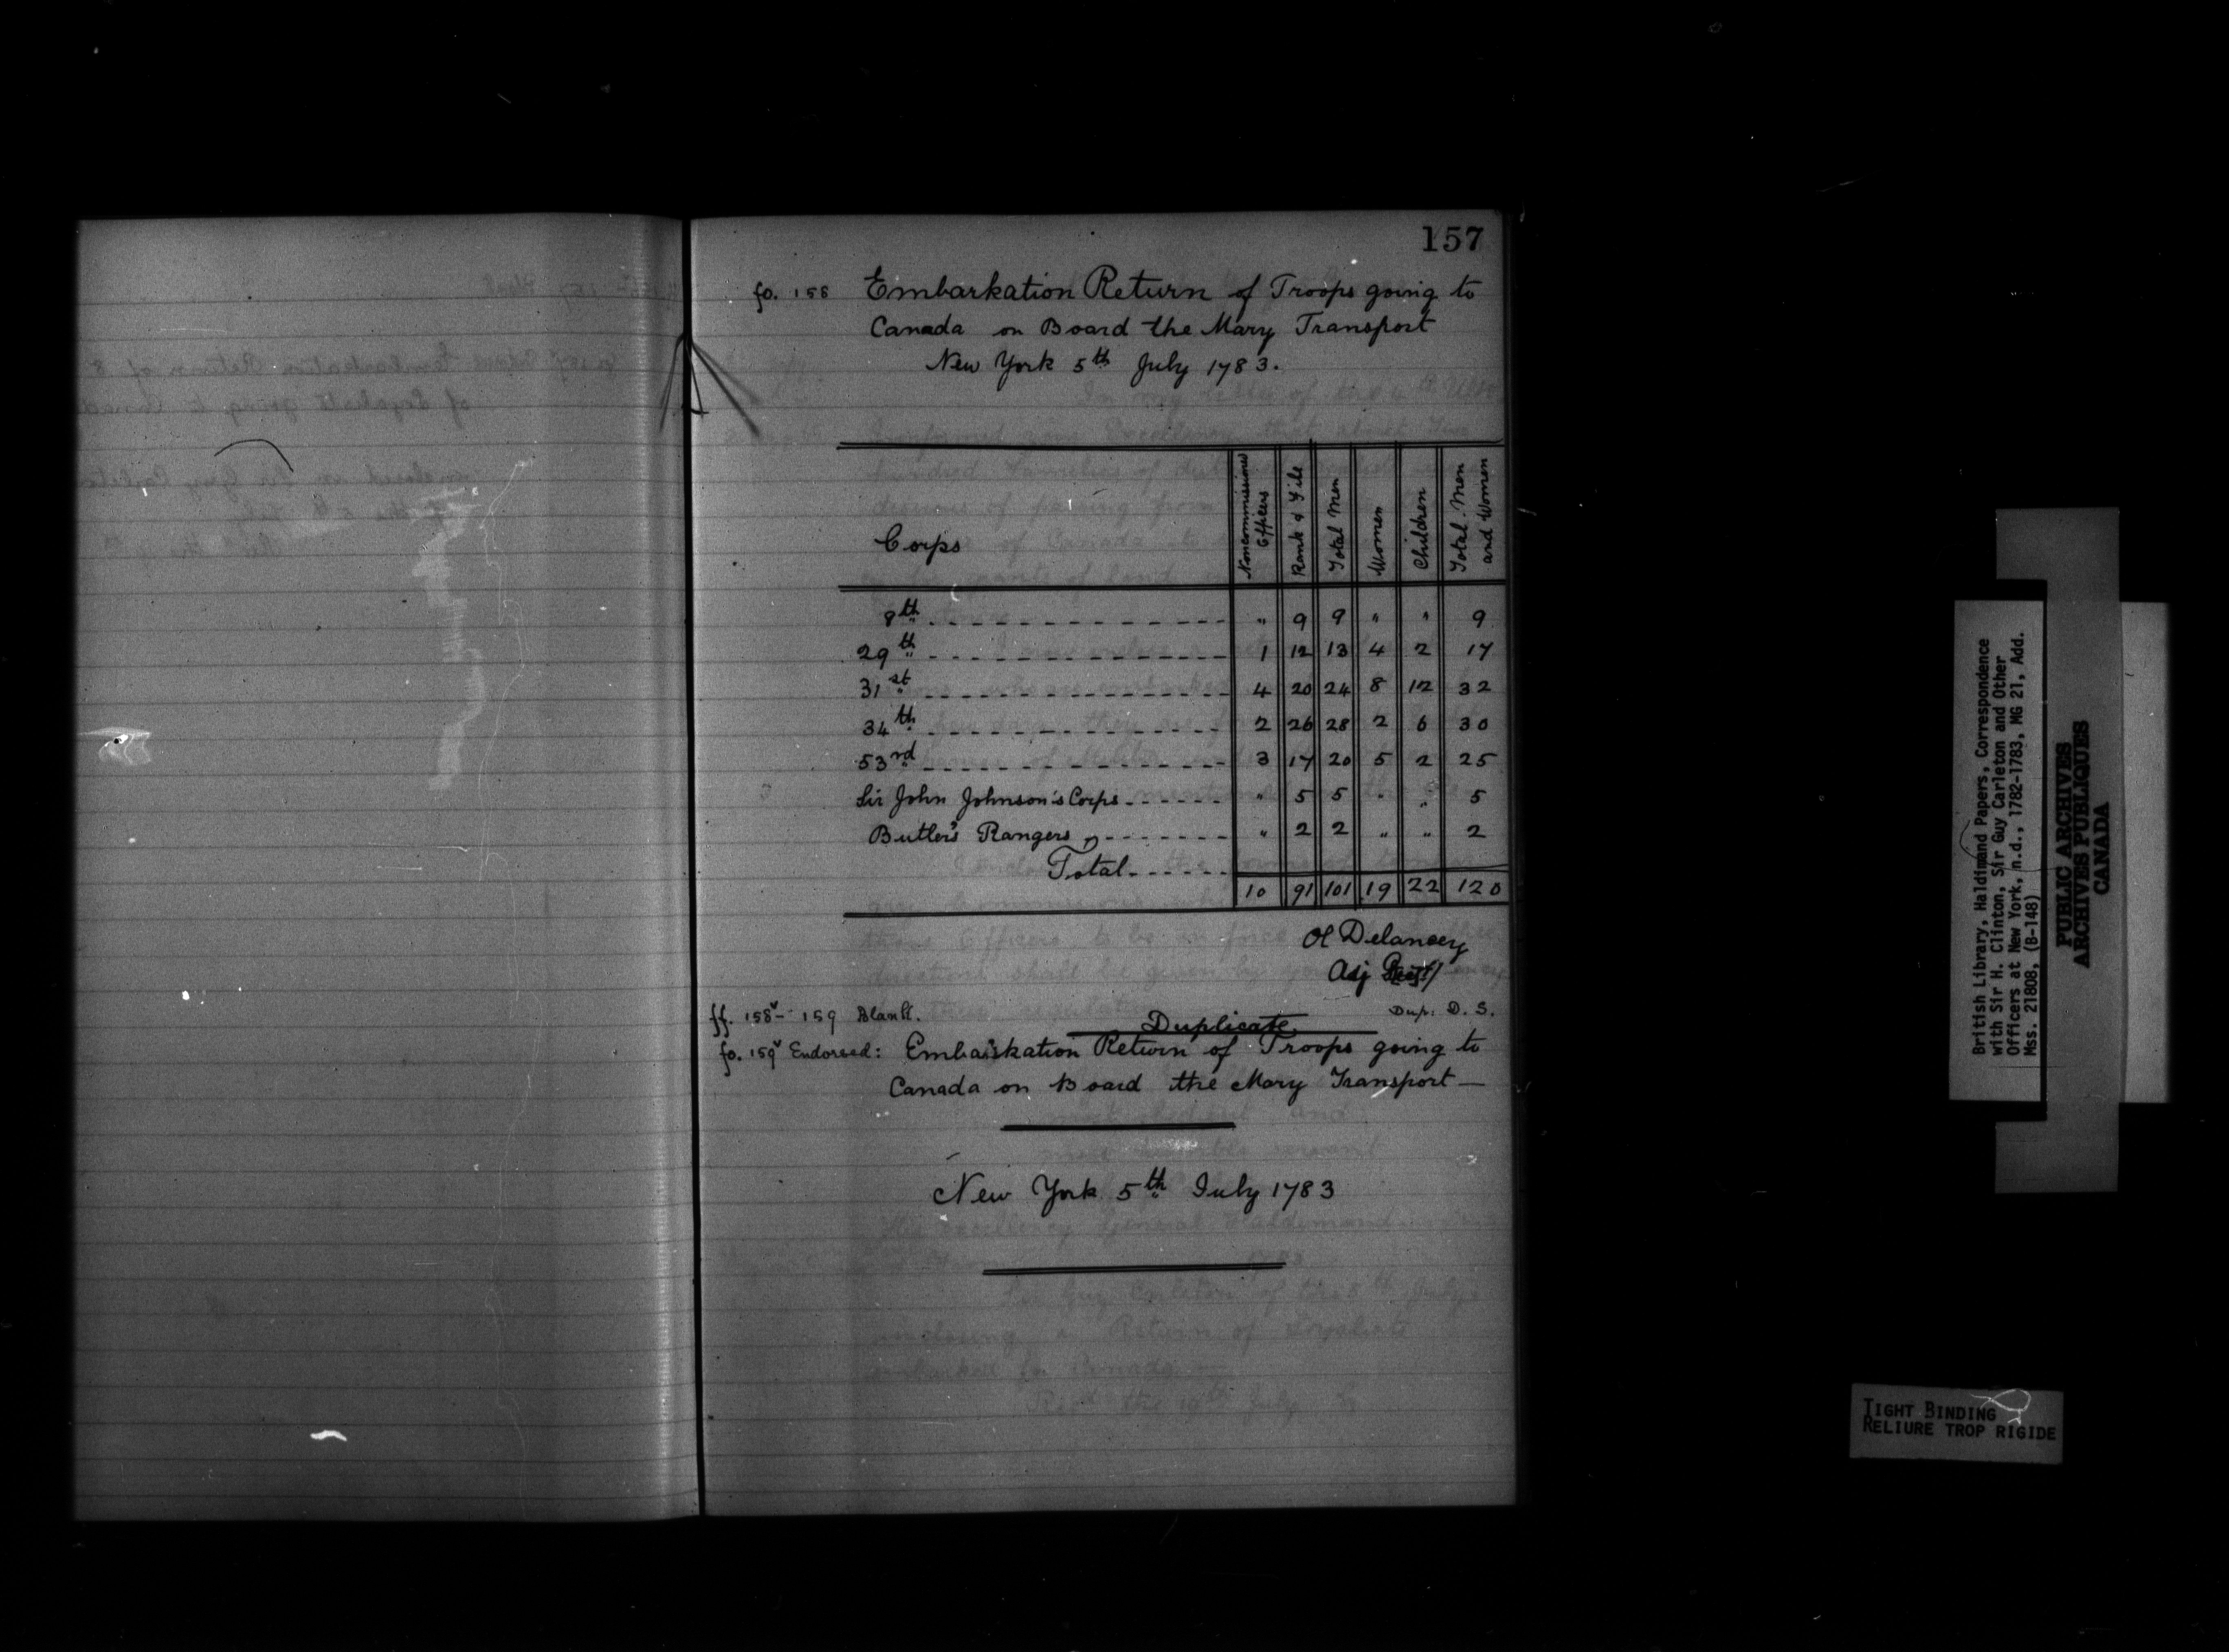 157
fo. 158 Embarkation Return of Troops going to
Canada on Board the Mary Transport
New York 5th July 1783.
Corps | Noncommissioned Officers | Rank & File | Total Men | Women | Children | Total Men and Women
8th | " | 9 | 9 | " | " | 9
29th | 1 | 12 | 13 | 4 | 2 | 17
31st | 4 | 20 | 24 | 8 | 12 | 32
34th | 2 | 26 | 28 | 2 | 6 | 30
53rd | 3 | 17 | 20 | 5 | 2 | 25
Sir John Johnson's Corps | " | 5 | 5 | " | " | 5
Butler's Rangers | " | 2 | 2 | " | " | 2
Total | 10 | 91 | 101 | 19 | 22 | 120
Ol Delancey
Adj
Dup: D. S.
ff. 158v - 159 Blank.
Duplicate
fo. 159v Endorsed: Embarkation Return of Troops going to
Canada on Board the Mary Transport —
New York 5th July 1783
British Library, Haldimand Papers, Correspondence
with Sir H. Clinton, Sir Guy Carleton and Other
Officers at New York, n.d., 1782-1783, MG 21, Add.
Mss. 21808, (B-148)
PUBLIC ARCHIVES
ARCHIVES PUBLIQUES
CANADA
TIGHT BINDING
RELIURE TROP RIGIDE